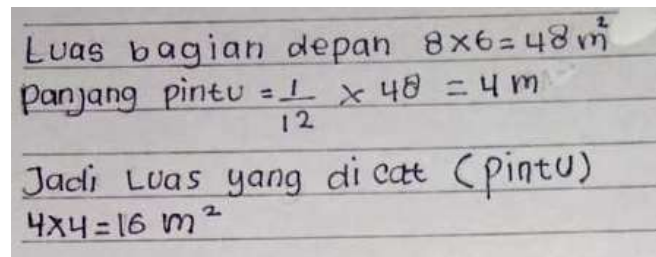 Luas bagian depan 8×6=48 m²
Panjang pintu = 1/12 × 48 = 4 m
Jadi Luas yang di catt (pintu)
4×4=16 m²